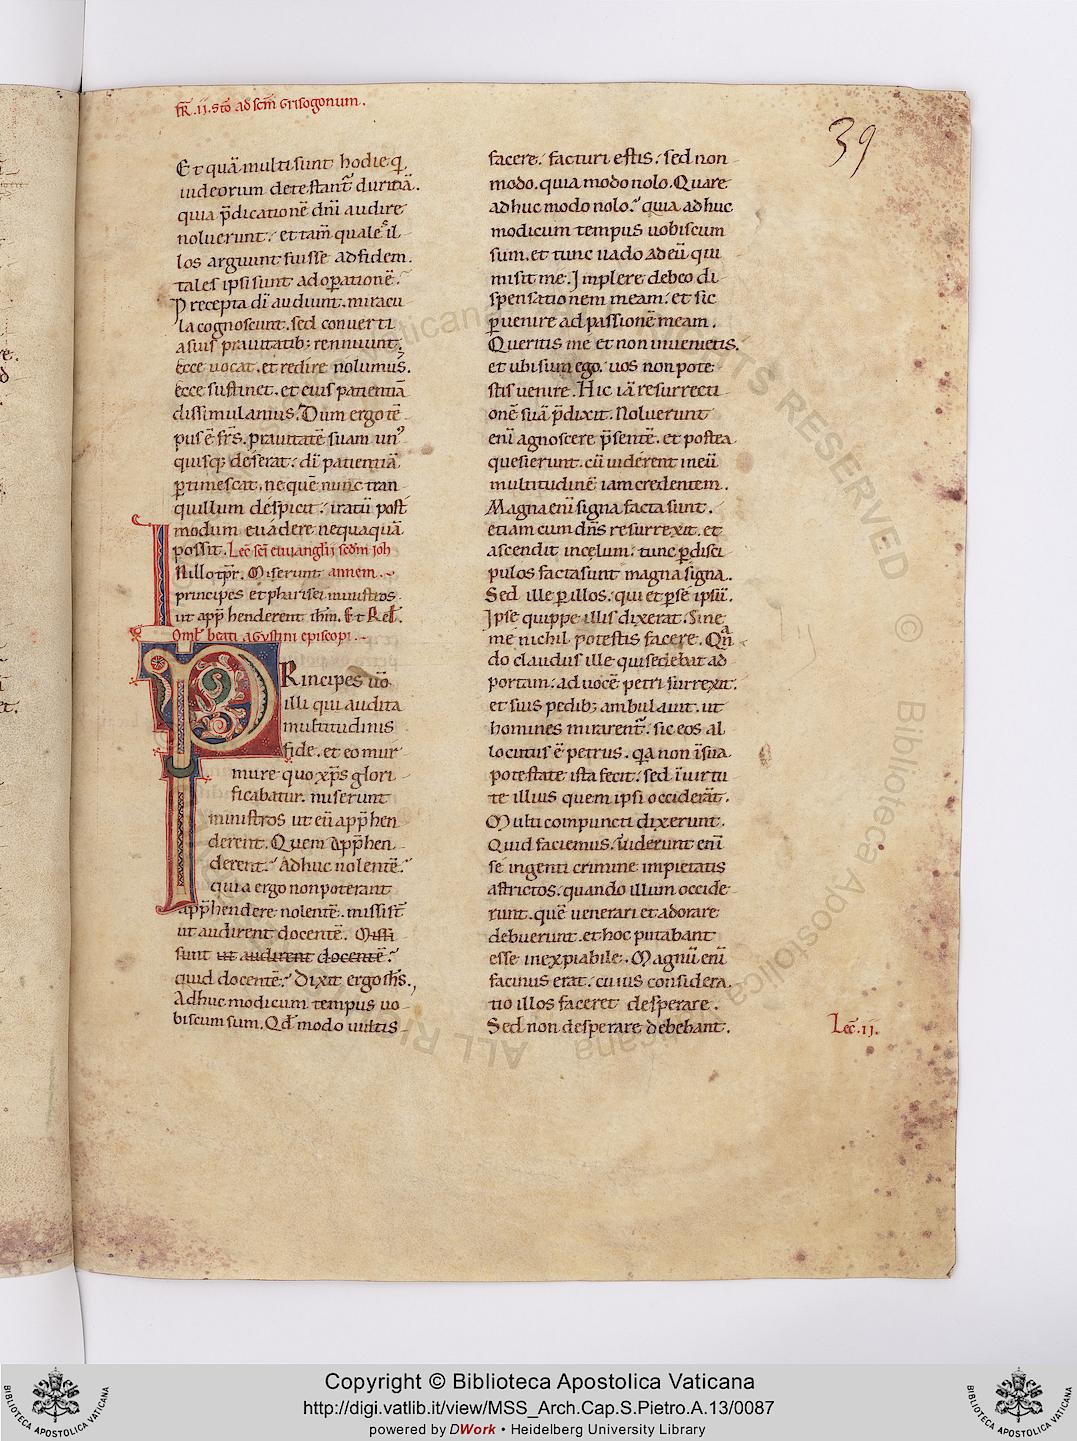 fr̄. ii. Stō ad scm̄ Grisogonum.
39
Et quā multi sunt hodie q̇
iudeorum detestant᷑ duritiā.
quia p̄dicationē dnī audire
noluerunt. et tam̄ quales il
los arguunt fuisse ad fidem.
tales ipsi sunt ad opationē.
Precepta dī audiunt. miracu
la cognoscunt. sed converti
a suis prauitatib; rennuunt.
Ecce uocat. et redire nolumus.
ecce sustinet. et eius patientiā
dissimulamus. Dum ergo tē
pus ē frs̄. prauitatē suam un᷑
quisq; deserat. dī patientiā
ptimescat. ne quē nunc tran
quillum despicit. iratū post
modum euadere nequaquā
possit. Lec̄ sci euuanglīj scdm̄ ioh
In illo tpr̄. Miserunt annem.
principes et pharisei ministros
ut app̄henderent ihm̄. Et Rel̄.
Oml̄ beati aGustini episcopi.
PRincipes uō
illi qui audita
multitudinis
fide. et eo mur
mure quo xp̄s glori
ficabatur. miserunt
ministros ut eū app̄hen
derent. Quem App̄hen
derent. Adhuc nolentē.
quia ergo non poterant
app̄hendere nolentē. missi st̄
ut audirent docentē. Missi
sunt ut audirent docentē.
quid docentē. Dixit ergo ihs̄.
Adhuc modicum tempus uo
biscum sum. Qd̄ modo uultis
facere. facturi estis. sed non
modo. quia modo nolo. Quare
adhuc modo nolo. quia adhuc
modicum tempus uobiscum
sum. et tunc uado ad eū qui
misit me. Implere debeo di
spensationem meam. et sic
puenire ad passionē meam.
Queritis me et non inuenietis.
et ubi sum ego. uos non pote
stis uenire. Hic iā resurrecti
onē suā p̄dixit. Noluerunt
eni agnoscere p̄sentē. et postea
quesierunt. cū uiderent in eū
multitudinē iam credentem.
Magna eni signa facta sunt.
etiam cum dn̄s resurrexit. et
ascendit in celum. tunc p disci
pulos facta sunt magna signa.
Sed ille p illos. qui et p se ipsū.
Ipse quippe illis dixerat. Sine
me nichil potestis facere. Qn̄
do claudus ille qui sedebat ad
portam. ad uocē petri surrexit.
et suis pedib; ambulauit. ut
homines mirarent᷑. sic eos al
locutus ē petrus. qa non ī sua
potestate ista fecit. sed ī uirtu
te illius quem ipsi occiderāt.
Multi compuncti dixerunt.
Quid faciemus. uiderunt eni
se ingenti crimine impietatis
astrictos. quando illum occide
runt. quē uenerari et adorare
debuerunt. et hoc putabant
esse inexpiabile. Magnū eni
facinus erat. cuius considera
tio illos faceret desperare.
Sed non desperare debebant.
Lec̄. ii.
Copyright © Biblioteca Apostolica Vaticana
http://digi.vatlib.it/view/MSS_Arch.Cap.S.Pietro.A.13/0087
powered by DWork • Heidelberg University Library
BIBLIOTECA APOSTOLICA VATICANA
BIBLIOTECA APOSTOLICA VATICANA